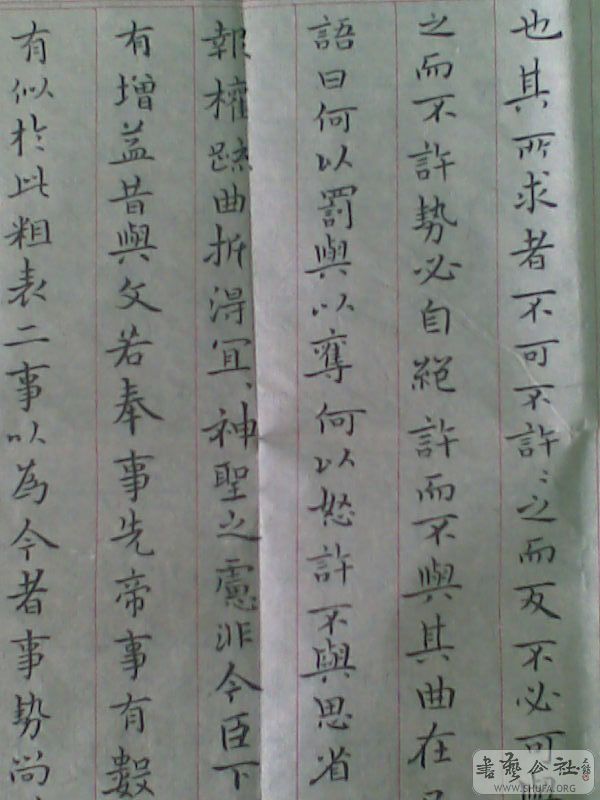 也其所求者不可不許〻之而反不必可
之而不許勢必自絕許而不與其曲在
語曰何以罰與以奪何以怒許不與思省
報權䟽曲折得宜、神聖之慮非今臣下
有增益昔與文若奉事先帝事有數
有似於此粗表二事以為今者事勢尚
書藝公社
WWW.SHUFA.ORG